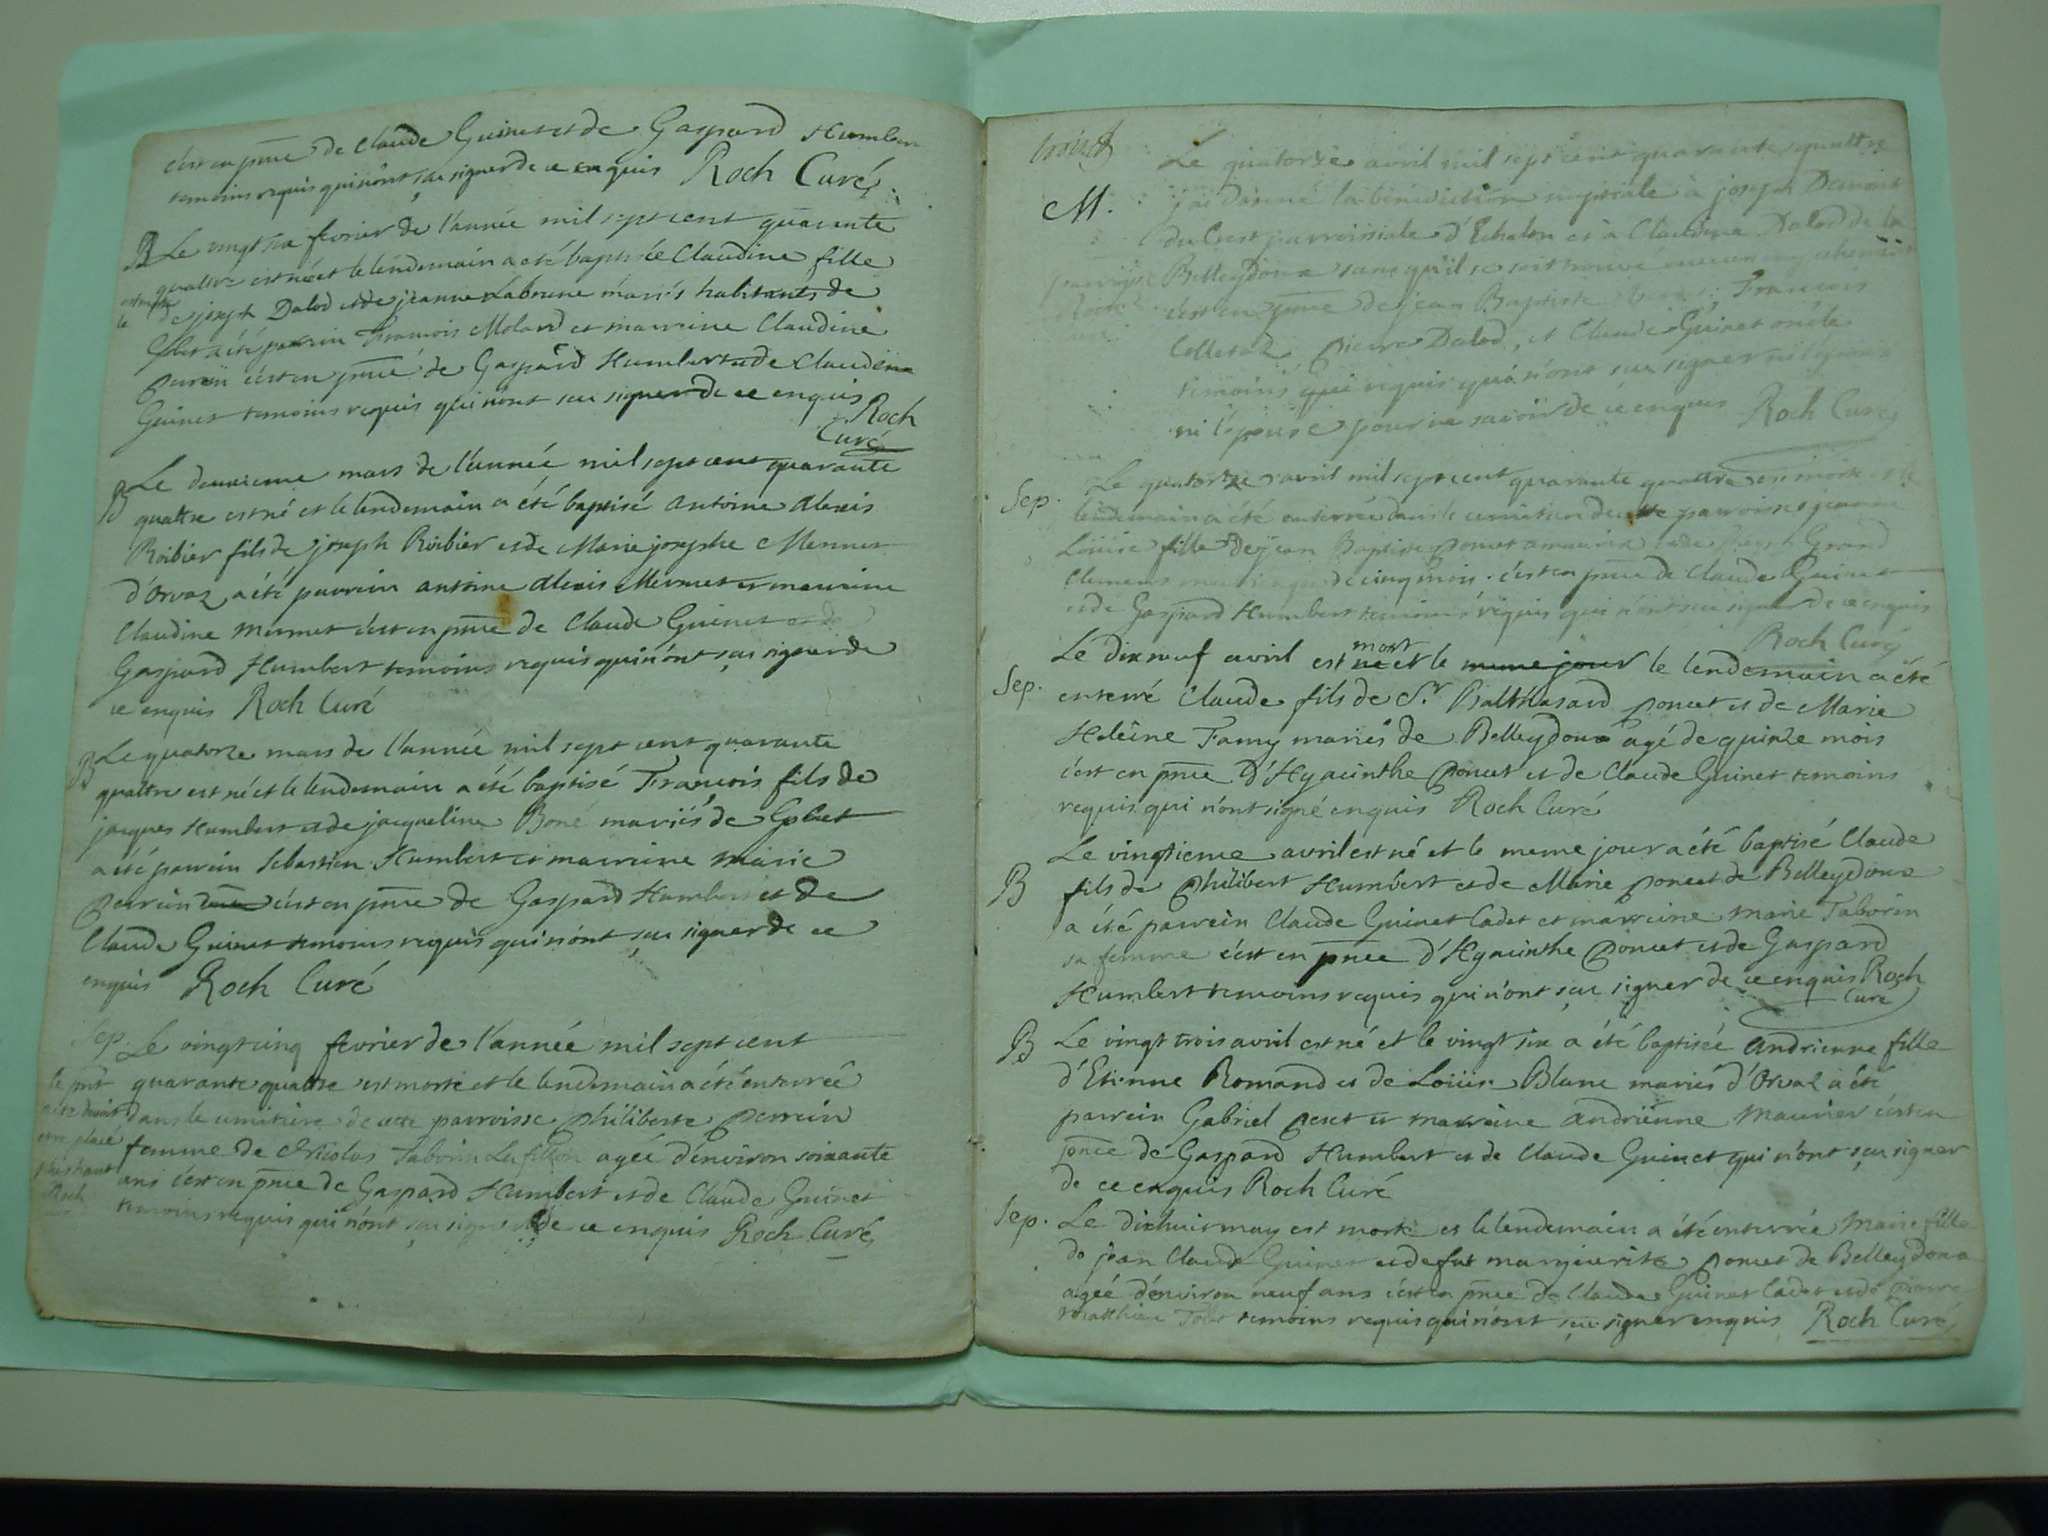 c'est en pnce de Claude Guinet et de Gaspard Humbert
temoins requis qui n'ont sçu signer de ce enquis Roch Curé
B Le vingt six fevrier de l'année mil sept cent quarante
quattre est née et le lendemain a été baptisée Claudine fille
de joseph Dalod et de jeanne Labrune mariés habitants de
a été parrein Francois Molard et marreine Claudine
c'est en pnce de Gaspard Humbert et de Claude
Guinet temoins requis qui n'ont sçu signer de ce enquis
Roch
Curé
B Le deuxieme mars de l'année mil sept cent quarante
quattre est né et le lendemain a été baptisé antoine alexis
Roibier fils de joseph Roibier et de Marie josephe Mermet
d'Orvaz a été parrein antoine alexis Mermet et marreine
Claudine mermet c'est en pnce de Claude Guinet et de
Gaspard Humbert temoins requis qui n'ont sçu signer de
ce enquis Roch Curé
B Le quatorze mars de l'année mil sept cent quarante
quattre est né et le lendemain a été baptisé Francois fils de
jacques Humbert et de jacqueline Boné mariés de Gobet
a été parrein Sebastien Humbert et marreine marie
Perrein c'est en pnce de Gaspard Humbert et de
Claude Guinet temoins requis qui n'ont sçu signer de ce
enquis Roch Curé
Sep. Le vingt cinq fevrier de l'année mil sept cent
le pnt quarante quattre est morte et le lendemain a été enterrée
acte devoit dans le cimitiere de cette parroisse philiberte perrein
etre placé femme de Nicolas Taborin agée d'environ soixante
plus haut ans c'est en pnce de Gaspard Humbert et de Claude Guinet
Roch temoins requis qui n'ont sçu signer de ce enquis Roch Curé
Le quatorze avril mil sept cent quarante quattre
M. j'ai donné la benediction nuptiale à joseph
du Crest parroissiale d'Echalon et à Claudina Dalod de la
Belleydoux sans qu'il se soit trouvé aucun
c'est en pnce de jean Baptiste Francois
pierre Dalod, et Claude Guinet
temoins requis qui n'ont sçu signer ni l'epoux
ni l'epouse pour ne savoir de ce enquis Roch Curé
Sep. Le quatorze avril mil sept cent quarante quattre est morte et le
lendemain a été enterrée dans le cimitiere de cette parroisse jeanne
Louise fille de jean Baptiste poncet
agée de cinq mois c'est en pnce de Claude Guinet
et de Gaspard Humbert temoins requis qui n'ont sçu signer de ce enquis
Roch Curé
mort
Le dix neuf avril est né et le meme jour le lendemain a été
Sep. enterré Claude fils de Sr Balthasard poncet et de Marie
Heleine Famy mariés de Belleydoux agé de quinze mois
c'est en pnce d'Hyacinthe poncet et de Claude Guinet temoins
requis qui n'ont signé enquis Roch Curé
Le vingtieme avril est né et le meme jour a été baptisé Claude
B fils de philibert Humbert et de Marie poncet de Belleydoux
a été parrein Claude Guinet Cadet et marreine marie Taborin
sa femme c'est en pnce d'Hyacinthe poncet et de Gaspard
Humbert temoins requis qui n'ont sçu signer de ce enquis Roch
Curé
B Le vingt trois avril est né et le vingt six a été baptisée andrienne fille
d'Etienne Romand et de Loüise Blanc mariés d'Orvaz a été
parrein Gabriel et marreine andrienne Maurier c'est en
pnce de Gaspard Humbert et de Claude Guinet qui n'ont sçu signer
de ce enquis Roch Curé
Sep. Le dixhuit may est morte et le lendemain a été enterrée marie fille
de jean Claude Guinet et de fut marguerite poncet de Belleydoux
agée d'environ neuf ans c'est en pnce de Claude Guinet Cadet et de pierre
matthieu temoins requis qui n'ont sçu signer enquis Roch Curé